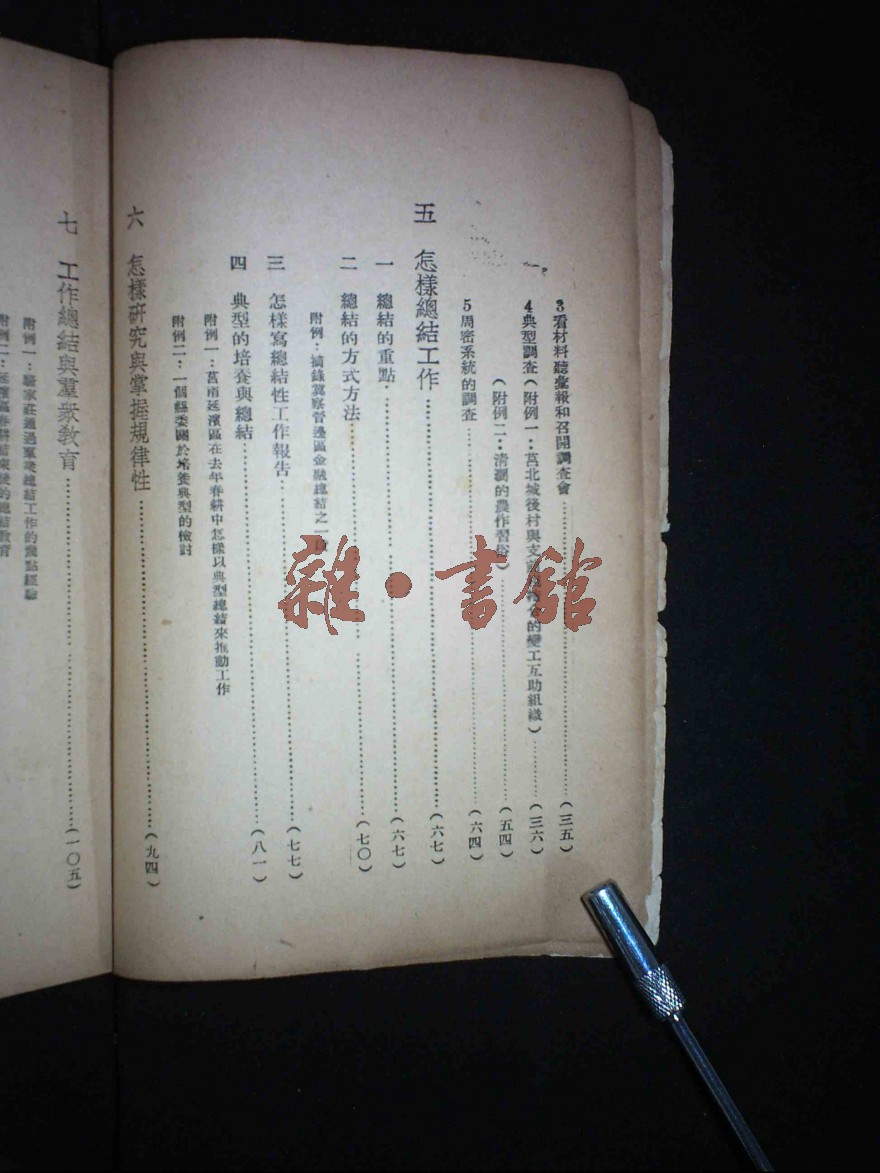 3看材料聽彙報和召開調查會……(三五)
4典型調查(附例一：莒北城後村與支前結合的變工互助組織)……(三六)
(附例二：清澗的農作習俗)……(五四)
5周密系統的調查……(六四)
五 怎樣總結工作……(六七)
一 總結的重點……(六七)
二 總結的方式方法……(七〇)
附例：摘錄冀察晉邊區金融總結之一
三 怎樣寫總結性工作報告……(七七)
四 典型的培養與總結……(八一)
附例一：莒南延濱區在去年春耕中怎樣以典型總結來推動工作
附例二：一個縣委關於培養典型的檢討
六 怎樣研究與掌握規律性……(九四)
七 工作總結與羣衆教育……(一〇五)
附例一：家莊通過羣衆總結工作的幾點經驗
附例二：延濱區春耕結束後的總結教育
雜·書館